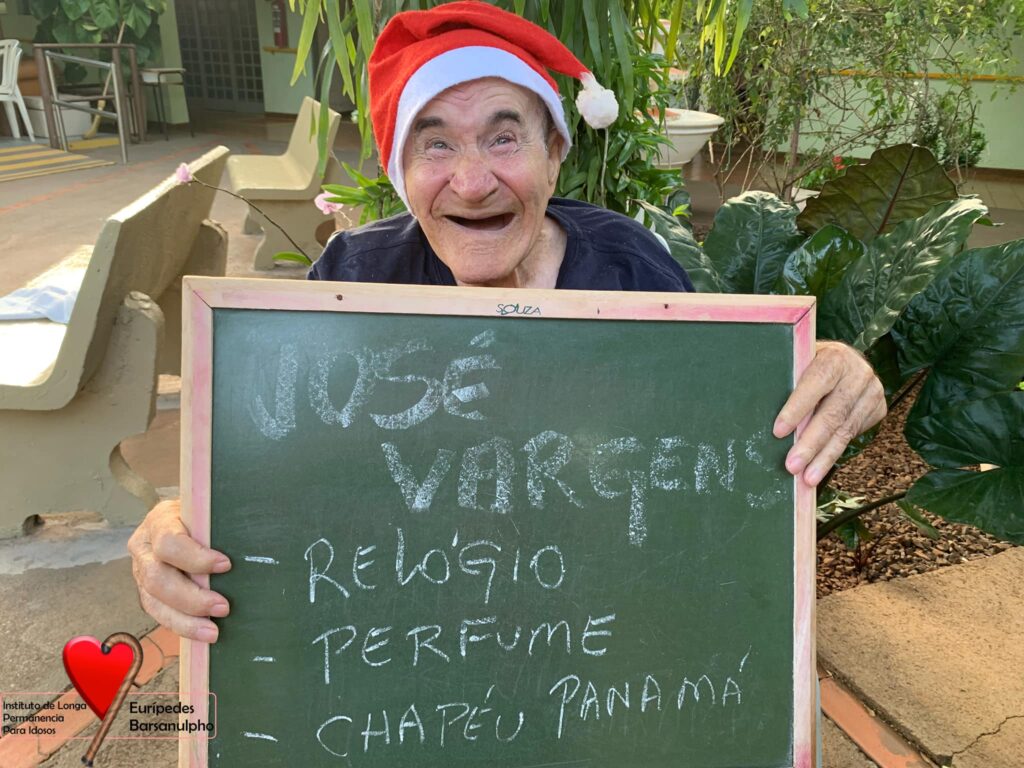 SOUZA
JOSÉ
VARGENS
- RELÓGIO
- PERFUME
- CHAPÉU PANAMÁ
Instituto de Longa
Permanencia
Para Idosos
Eurípedes
Barsanulpho